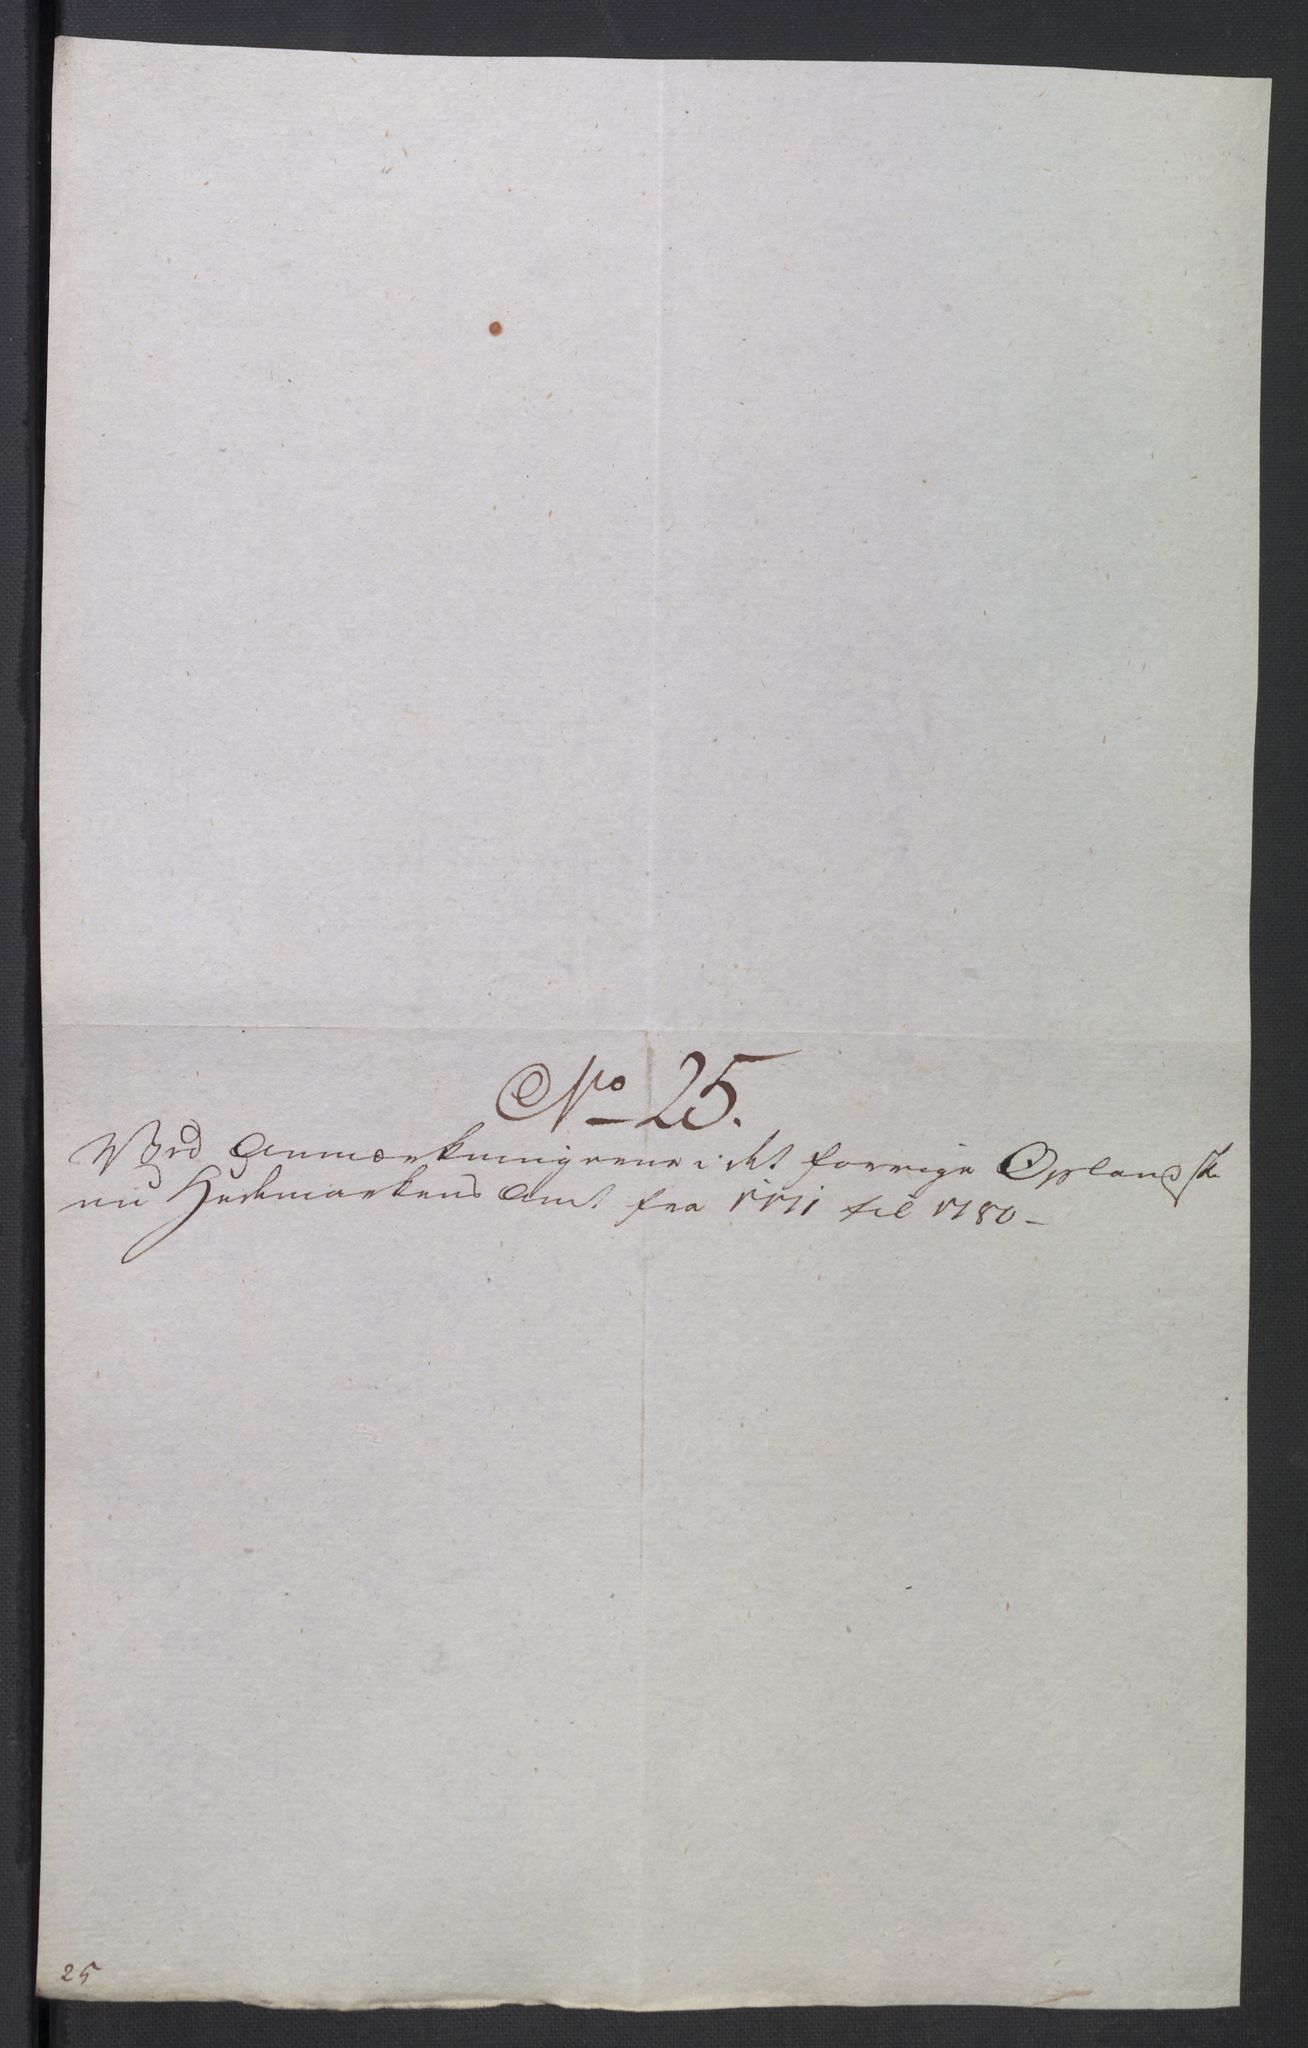 No 25.
Ved Anmærkningerne i det forrige Oplandske
nu Hedemarkens Amt fra 1771 til 1780 –
25